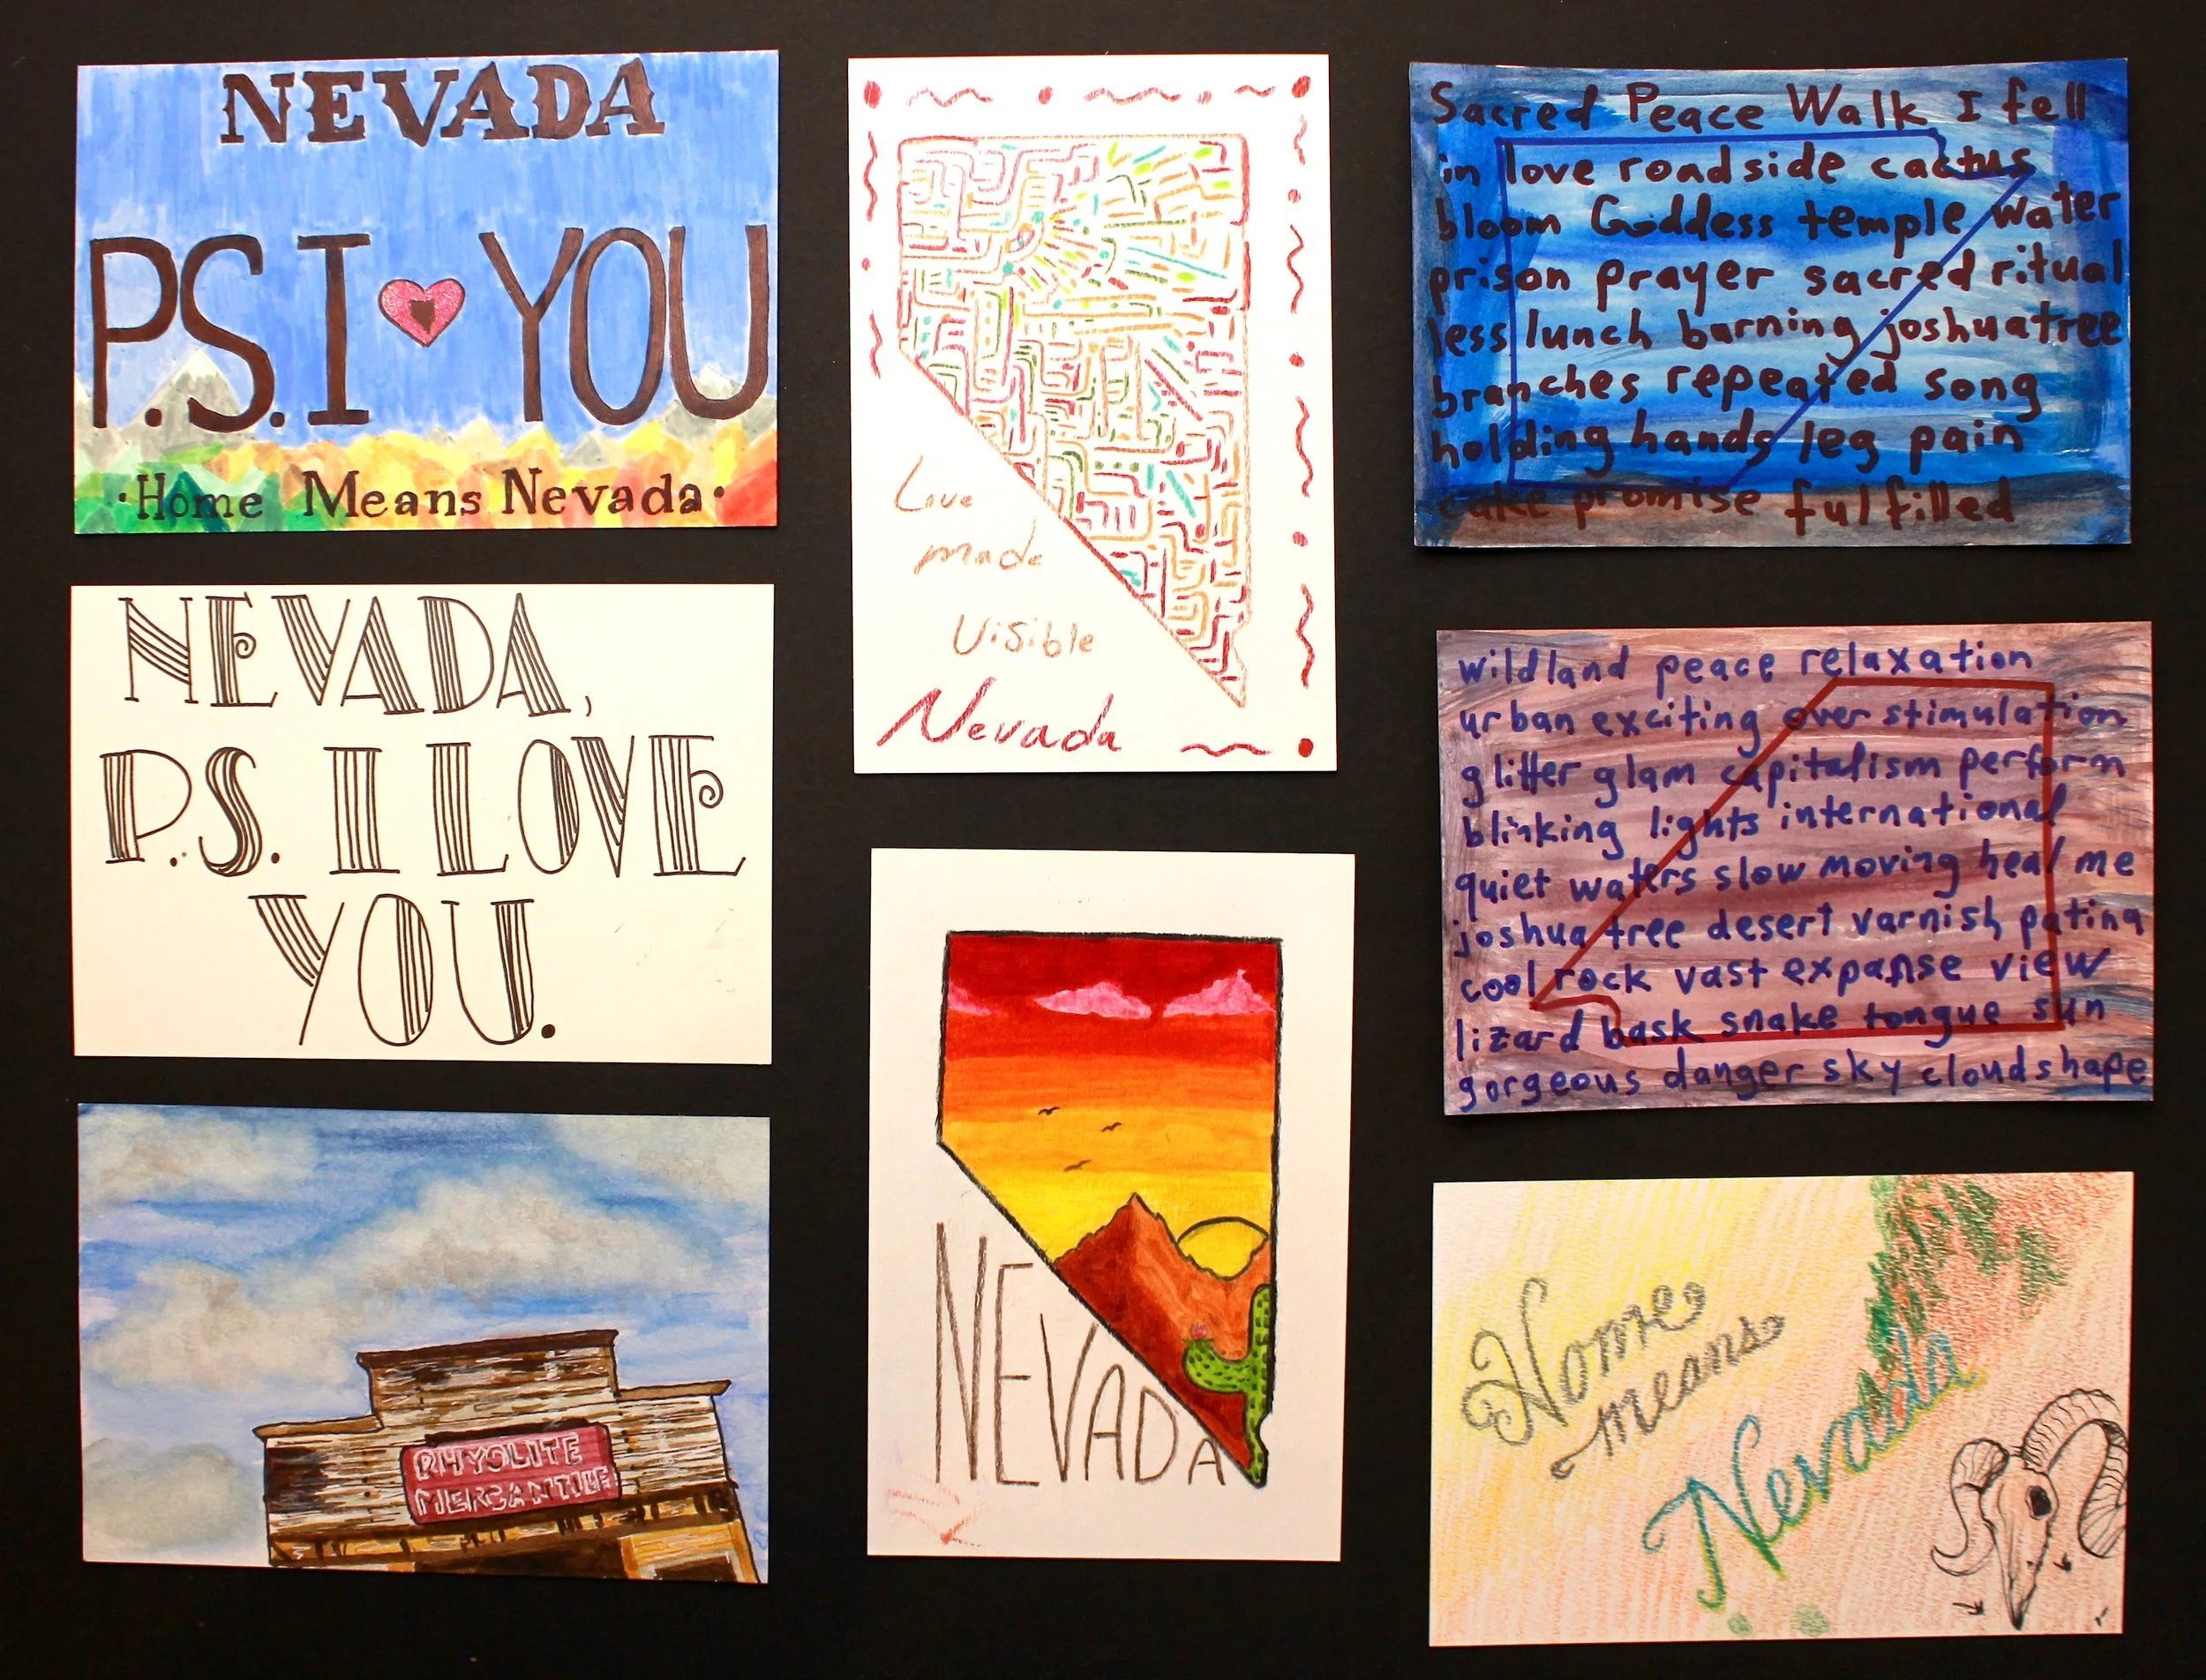 NEVADA
P.S. I YOU
·Home Means Nevada·
NEVADA,
P.S. I LOVE
YOU.
RHYOLITE
MERCANTILE
Love
made
Visible
Nevada
NEVADA
Sacred Peace Walk I fell
in love roadside cactus
bloom Goddess temple water
prison prayer sacred ritual
less lunch burning joshuatree
branches repeated song
holding hands leg pain
cake promise fulfilled
wildland peace relaxation
urban exciting over stimulation
glitter glam capitalism perform
blinking lights international
quiet waters slow moving heal me
joshua tree desert varnish patina
cool rock vast expanse view
lizard bask snake tongue sun
gorgeous danger sky cloudshape
Home
means
Nevada